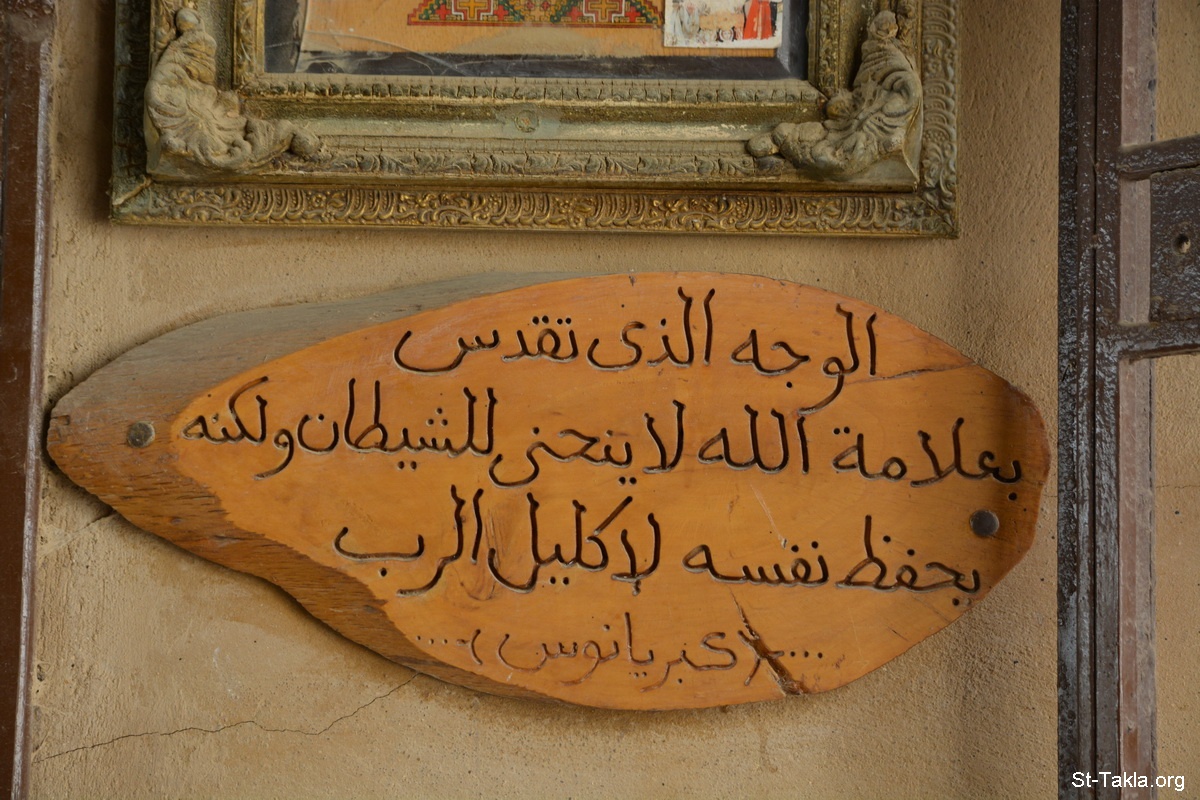 الوجه الذى تقدس
بعلامة الله لا ينحنى للشيطان ولكنه
يحفظ نفسه لإكليل الرب
...(كبريانوس)....
St-Takla.org